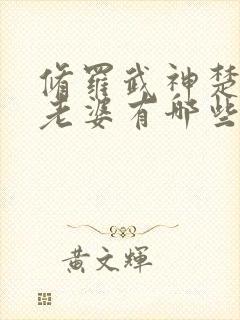 脩羅武神楚
老婆有哪些
黃文輝